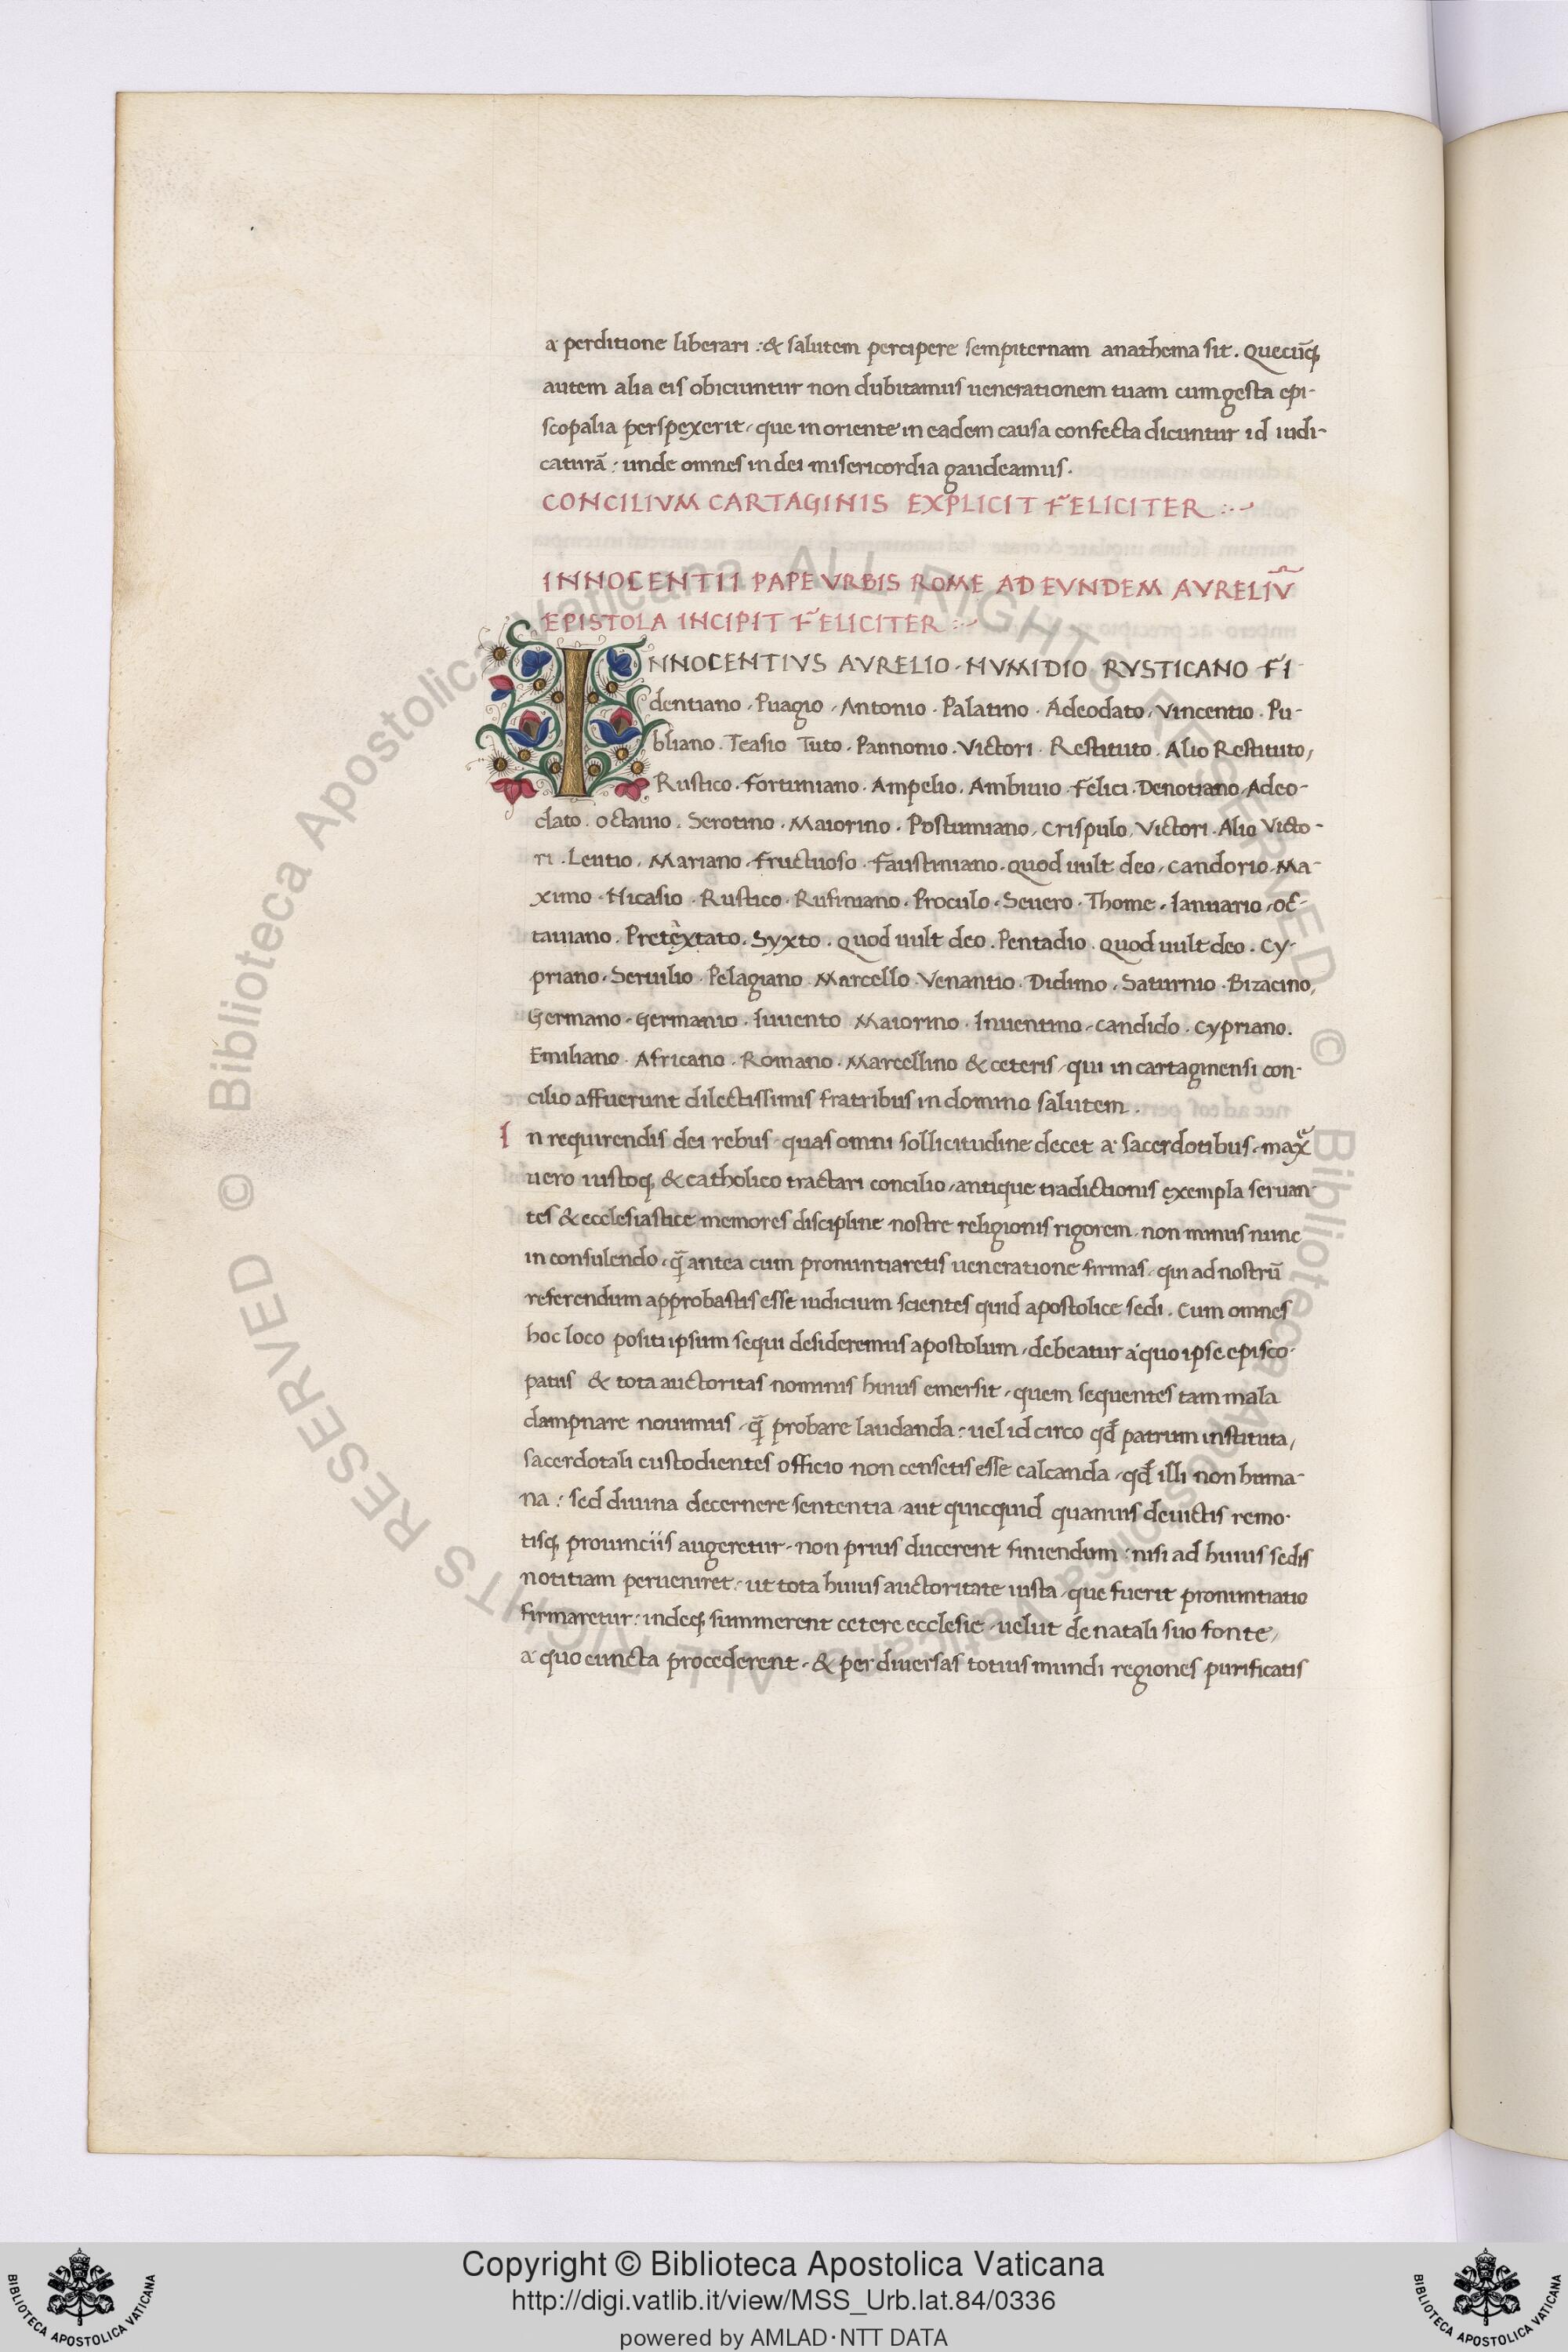 a perditione liberari : & salutem percipere sempiternam anathema sit . Quecūq;
autem alia eis obiciuntur non dubitamus uenerationem tuam cum gesta epi-
scopalia perspexerit, que in oriente in eadem causa confecta dicuntur id iudi-
caturā : unde omnes in dei misericordia gaudeamus.
CONCILIVM CARTAGINIS EXPLICIT FELICITER :·~
INNOCENTII PAPE VRBIS ROME AD EVNDEM AVRELIV̄
EPISTOLA INCIPIT FELICITER :·~
INNOCENTIVS AVRELIO · NVMIDIO RVSTICANO FI-
dentiano · Puagio · Antonio · Palatino · Adeodato · Vincentio · Pu-
bliano · Teasio Tuto · Pannonio · Victori · Restituto · Alio Restituto,
Rustico · Fortuniano · Ampelio · Ambiuio · Felici · Denotiano · Adeo-
dato · octauio · Serotino · Maiorino · Postumiano, Crispulo, Victori · Alio Victo-
ri · Leutio · Mariano · Fructuoso · Faustiniano · Quod uult deo, Candorio · Ma-
ximo · Nicasio · Rustico · Rufiniano · Proculo · Seuero · Thome · Ianuario · oc-
tauiano · Pretextato · Syxto · Quod uult deo · Pentadio · Quod uult deo · Cy-
priano · Seruilio · Pelagiano · Marcello · Venantio · Didimo · Saturnio · Bizacino,
Germano · Germanio · Iuuento Maiorino · Inuentino · Candido · Cypriano.
Emiliano · Africano · Romano · Marcellino & ceteris, qui in cartaginensi con-
cilio affuerunt dilectissimis fratribus in domino salutem.
In requirendis dei rebus quas omni sollicitudine decet a sacerdotibus, maxͣ
uero iustoq; & catholico tractari concilio, antique tradictionis exempla seruan-
tes & ecclesiastice memores discipline nostre religionis rigorem, non minus nunc
in consulendo, q̄ antea cum pronuntiaretis ueneratione firmas, qui ad nostrū
referendum approbastis esse iudicium scientes quid apostolice sedi. Cum omnes
hoc loco positi ipsum sequi desideremus apostolum, debeatur a quo ipse episco-
patus & tota auctoritas nominis huius emersit, quem sequentes tam mala
dampnare nouimus, q̄ probare laudanda : uel id circo qd̄ patrum instituta,
sacerdotali custodientes officio non censetis esse calcanda, qd̄ illi non huma-
na : sed diuina decernere sententia, aut quicquid quamuis deuictis remo-
tisq; prouinciis augeretur, non prius ducerent finiendum : nisi ad huius sedis
notitiam perueniret : ut tota huius auctoritate iusta, que fuerit pronuntiatio
firmaretur : indeq; summerent cetere ecclesie, uelut de natali suo fonte,
a quo cuncta procederent, & per diuersas totius mundi regiones purificatis
© Biblioteca Apostolica Vaticana ALL RIGHTS RESERVED © Biblioteca Apostolica Vaticana ALL RIGHTS RESERVED
Copyright © Biblioteca Apostolica Vaticana
http://digi.vatlib.it/view/MSS_Urb.lat.84/0336
powered by AMLAD·NTT DATA
BIBLIOTECA APOSTOLICA VATICANA
BIBLIOTECA APOSTOLICA VATICANA